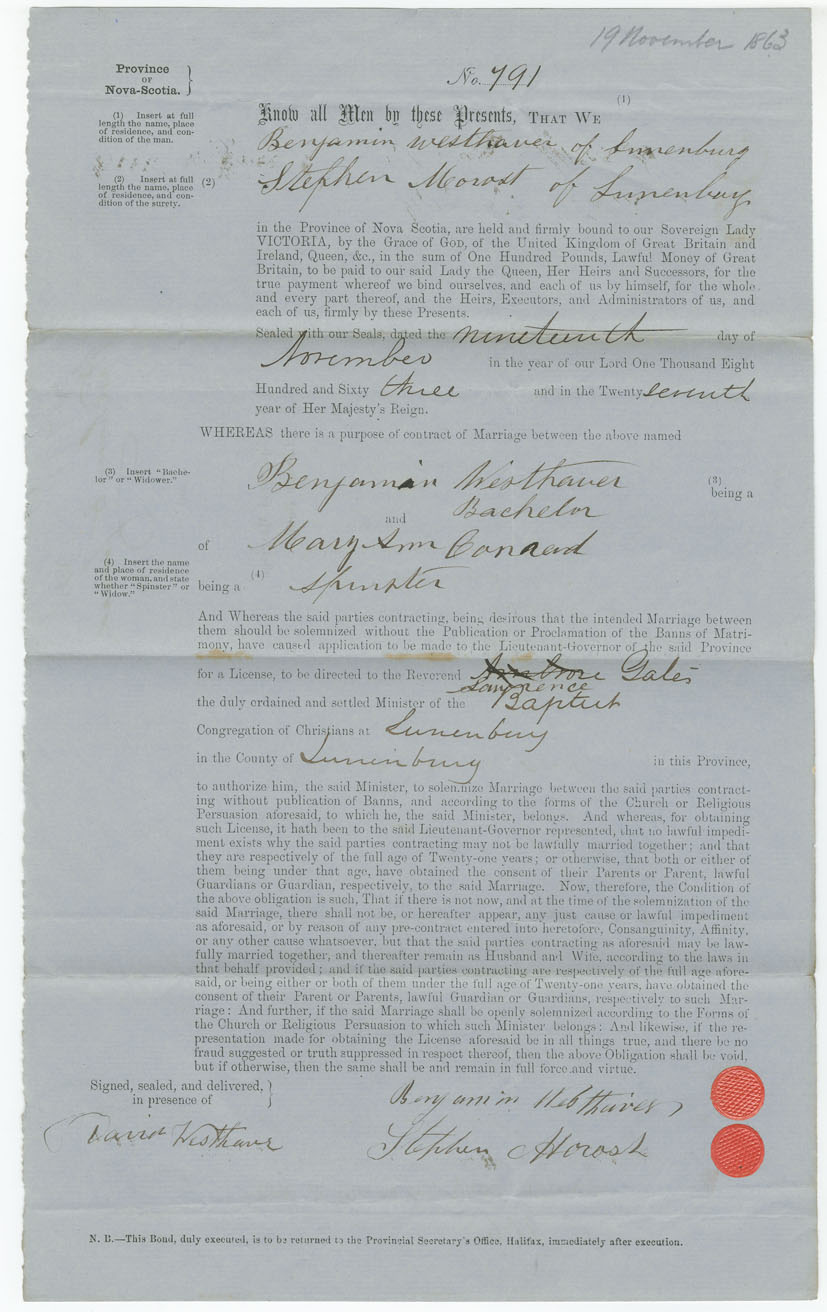 19 November 1863
Province
OF
Nova-Scotia.
No. 791
(1)
Know all Men by these Presents, THAT WE
(1) Insert at full
length the name, place
of residence, and con-
dition of the man.
Benjamin Westhaver of Lunenburg
(2) Insert at full
length the name, place
of residence, and con-
dition of the surety.
(2)
Stephen Morost of Lunenburg
in the Province of Nova Scotia, are held and firmly bound to our Sovereign Lady
VICTORIA, by the Grace of GOD, of the United Kingdom of Great Britain and
Ireland, Queen, &c., in the sum of One Hundred Pounds, Lawful Money of Great
Britain, to be paid to our said Lady the Queen, Her Heirs and Successors, for the
true payment whereof we bind ourselves, and each of us by himself, for the whole
and every part thereof, and the Heirs, Executors, and Administrators of us, and
each of us, firmly by these Presents.
Sealed with our Seals, dated the nineteenth day of
November in the year of our Lord One Thousand Eight
Hundred and Sixty three and in the Twenty seventh
year of Her Majesty's Reign.
WHEREAS there is a purpose of contract of Marriage between the above named
(3) Insert "Bache-
lor" or "Widower."
Benjamin Westhaver (3) being a
Bachelor
and
of Mary Ann Conrad
(4) Insert the name
and place of residence
of the woman, and state
whether "Spinster" or
"Widow."
being a (4) Spinster
And Whereas the said parties contracting, being desirous that the intended Marriage between
them should be solemnized without the Publication or Proclamation of the Banns of Matri-
mony, have caused application to be made to the Lieutenant-Governor of the said Province
for a License, to be directed to the Reverend Ambrose Gates
Lawrence
the duly ordained and settled Minister of the Baptist
Congregation of Christians at Lunenburg
in the County of Lunenburg in this Province,
to authorize him, the said Minister, to solemnize Marriage between the said parties contract-
ing without publication of Banns, and according to the forms of the Church or Religious
Persuasion aforesaid, to which he, the said Minister, belongs. And whereas, for obtaining
such License, it hath been to the said Lieutenant-Governor represented, that no lawful impedi-
ment exists why the said parties contracting may not be lawfully married together; and that
they are respectively of the full age of Twenty-one years; or otherwise, that both or either of
them being under that age, have obtained the consent of their Parents or Parent, lawful
Guardians or Guardian, respectively, to the said Marriage. Now, therefore, the Condition of
the above obligation is such, That if there is not now, and at the time of the solemnization of the
said Marriage, there shall not be, or hereafter appear, any just cause or lawful impediment
as aforesaid, or by reason of any pre-contract entered into heretofore, Consanguinity, Affinity,
or any other cause whatsoever, but that the said parties contracting as aforesaid may be law-
fully married together, and thereafter remain as Husband and Wife, according to the laws in
that behalf provided; and if the said parties contracting are respectively of the full age afore-
said, or being either or both of them under the full age of Twenty-one years, have obtained the
consent of their Parent or Parents, lawful Guardian or Guardians, respectively to such Mar-
riage: And further, if the said Marriage shall be openly solemnized according to the Forms of
the Church or Religious Persuasion to which such Minister belongs: And likewise, if the re-
presentation made for obtaining the License aforesaid be in all things true, and there be no
fraud suggested or truth suppressed in respect thereof, then the above Obligation shall be void,
but if otherwise, then the same shall be and remain in full force and virtue.
Signed, sealed, and delivered,
in presence of
Benjamin Westhaver
David Westhaver
Stephen Morost
N. B.—This Bond, duly executed, is to be returned to the Provincial Secretary's Office, Halifax, immediately after execution.